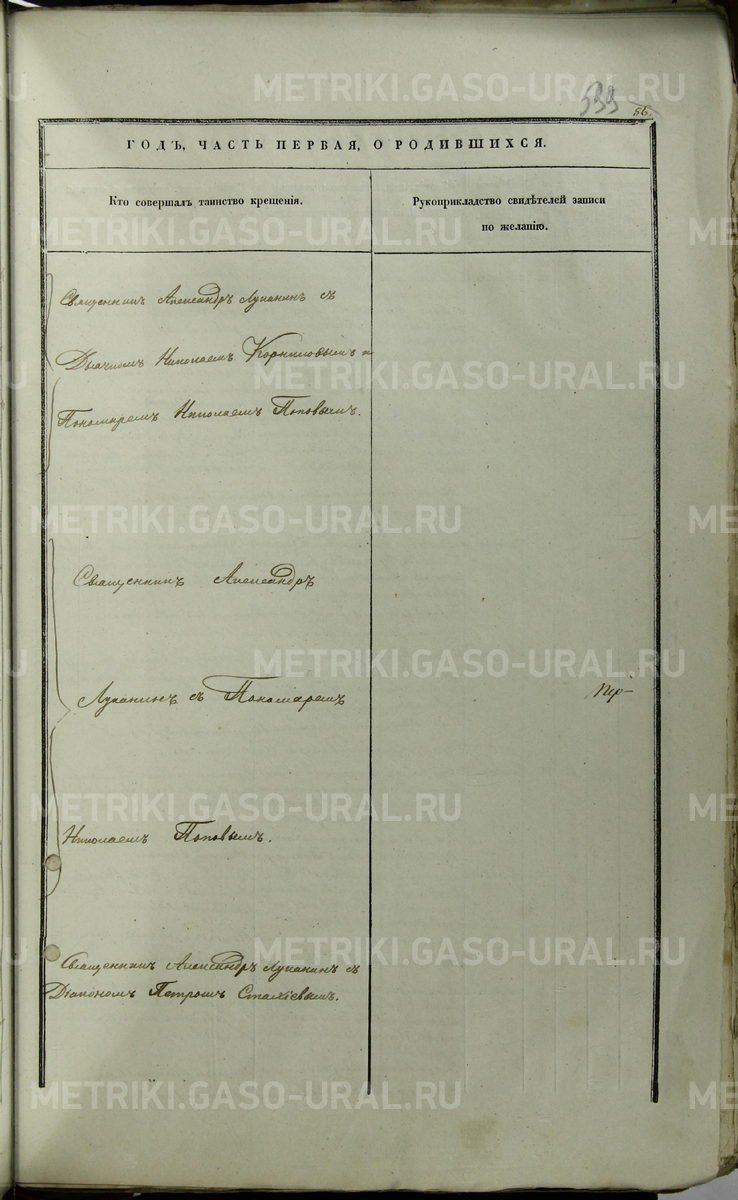 METRIKI.GASO-URAL.RU
533
56.
ГОДЪ, ЧАСТЬ ПЕРВАЯ, О РОДИВШИХСЯ.
Кто совершалъ таинство крещенія.
Рукоприкладство свидѣтелей записи
по желанію.
Священникъ Александръ Луканинъ съ
Дьячкомъ Николаемъ Корниловымъ и
Пономаремъ Николаемъ Поповымъ.
Священникъ Александръ
Луканинъ съ Пономаремъ
Николаемъ Поповымъ.
Священникъ Александръ Луканинъ съ
Діакономъ Петромъ